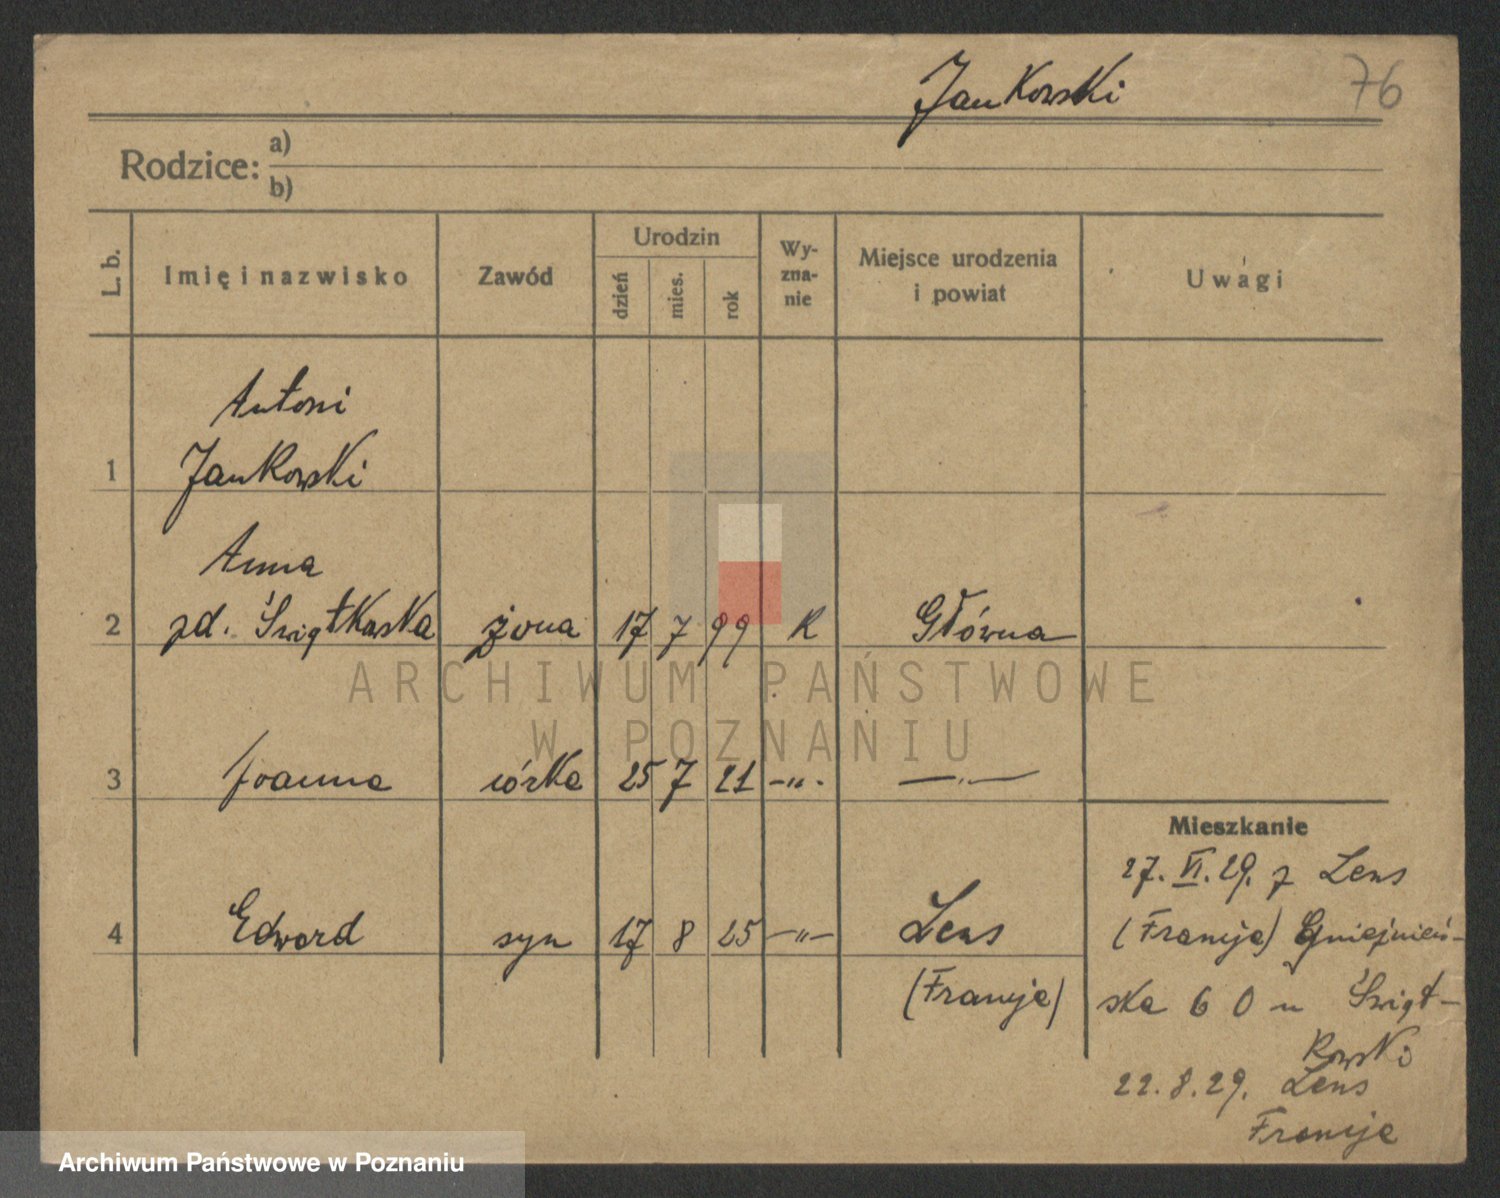 Jankowski
76
Rodzice: a)
b)
L. b.
Imię i nazwisko
Zawód
Urodzin
dzień
mies.
rok
Wy-
zna-
nie
Miejsce urodzenia
i powiat
Uwagi
Antoni
1 Jankowski
Anna
2 zd. Świątkowska żona 17 7 99 K Główna
3 Joanna córka 25 7 21 -„- -„-
4 Edward syn 17 8 25 -„- Lens
(Francja)
Mieszkanie
27. VI. 29. z Lens
(Francja) Gnieźnień-
ska 60 u Świąt-
kowski
22.8.29. Lens
Francja
ARCHIWUM PAŃSTWOWE
W POZNANIU
Archiwum Państwowe w Poznaniu